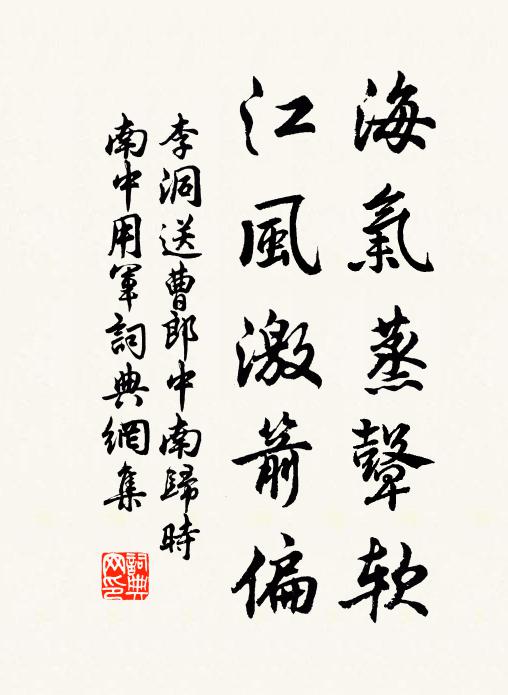 海氣蒸鼙軟
江風激箭偏
李洞送曹郎中南歸時
南中用軍詞典網集
詞典網印